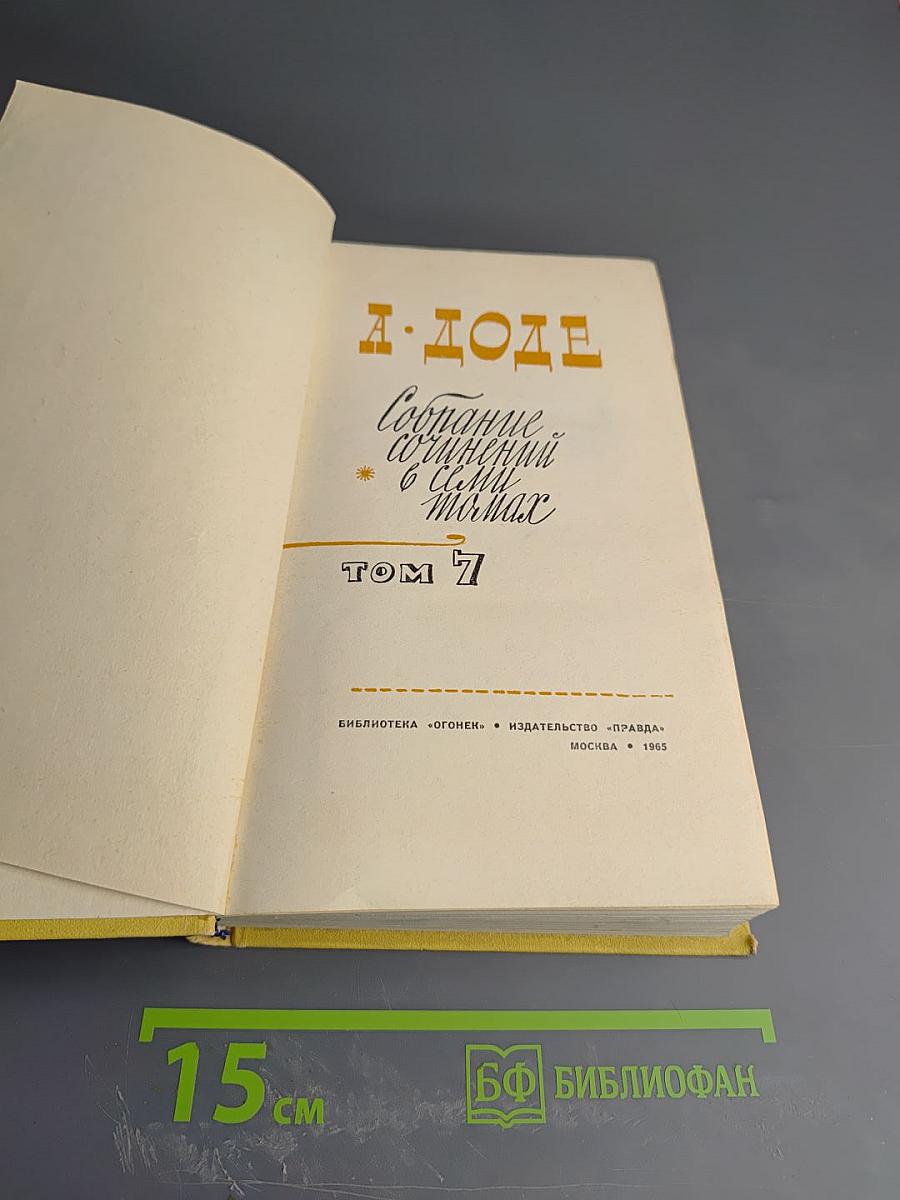 А·ДОДЕ
Собрание
сочинений
в семи
томах
ТОМ 7
БИБЛИОТЕКА «ОГОНЕК» • ИЗДАТЕЛЬСТВО «ПРАВДА»
МОСКВА • 1965
15 см
БФ БИБЛИОФАН